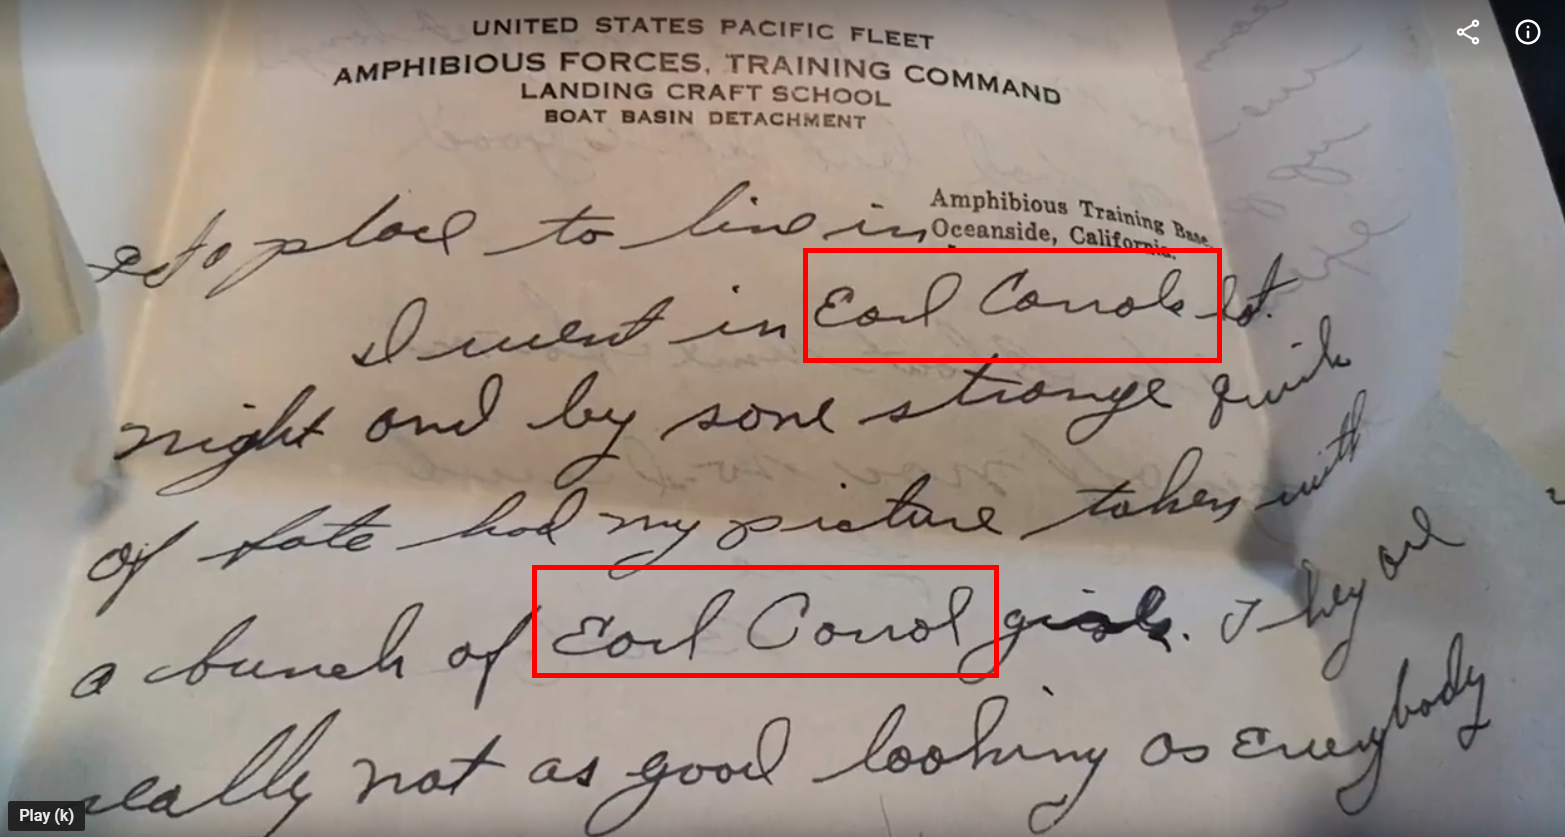 UNITED STATES PACIFIC FLEET
AMPHIBIOUS FORCES, TRAINING COMMAND
LANDING CRAFT SCHOOL
BOAT BASIN DETACHMENT
Amphibious Training Base,
Oceanside, California.
place to live in
I went in Earl Carrols Sat.
night and by some strange quirk
of fate had my picture taken with
a bunch of Earl Carrol girls. They are
really not as good looking as everybody
Play (k)